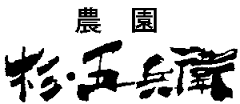 農園
杉・五兵衛